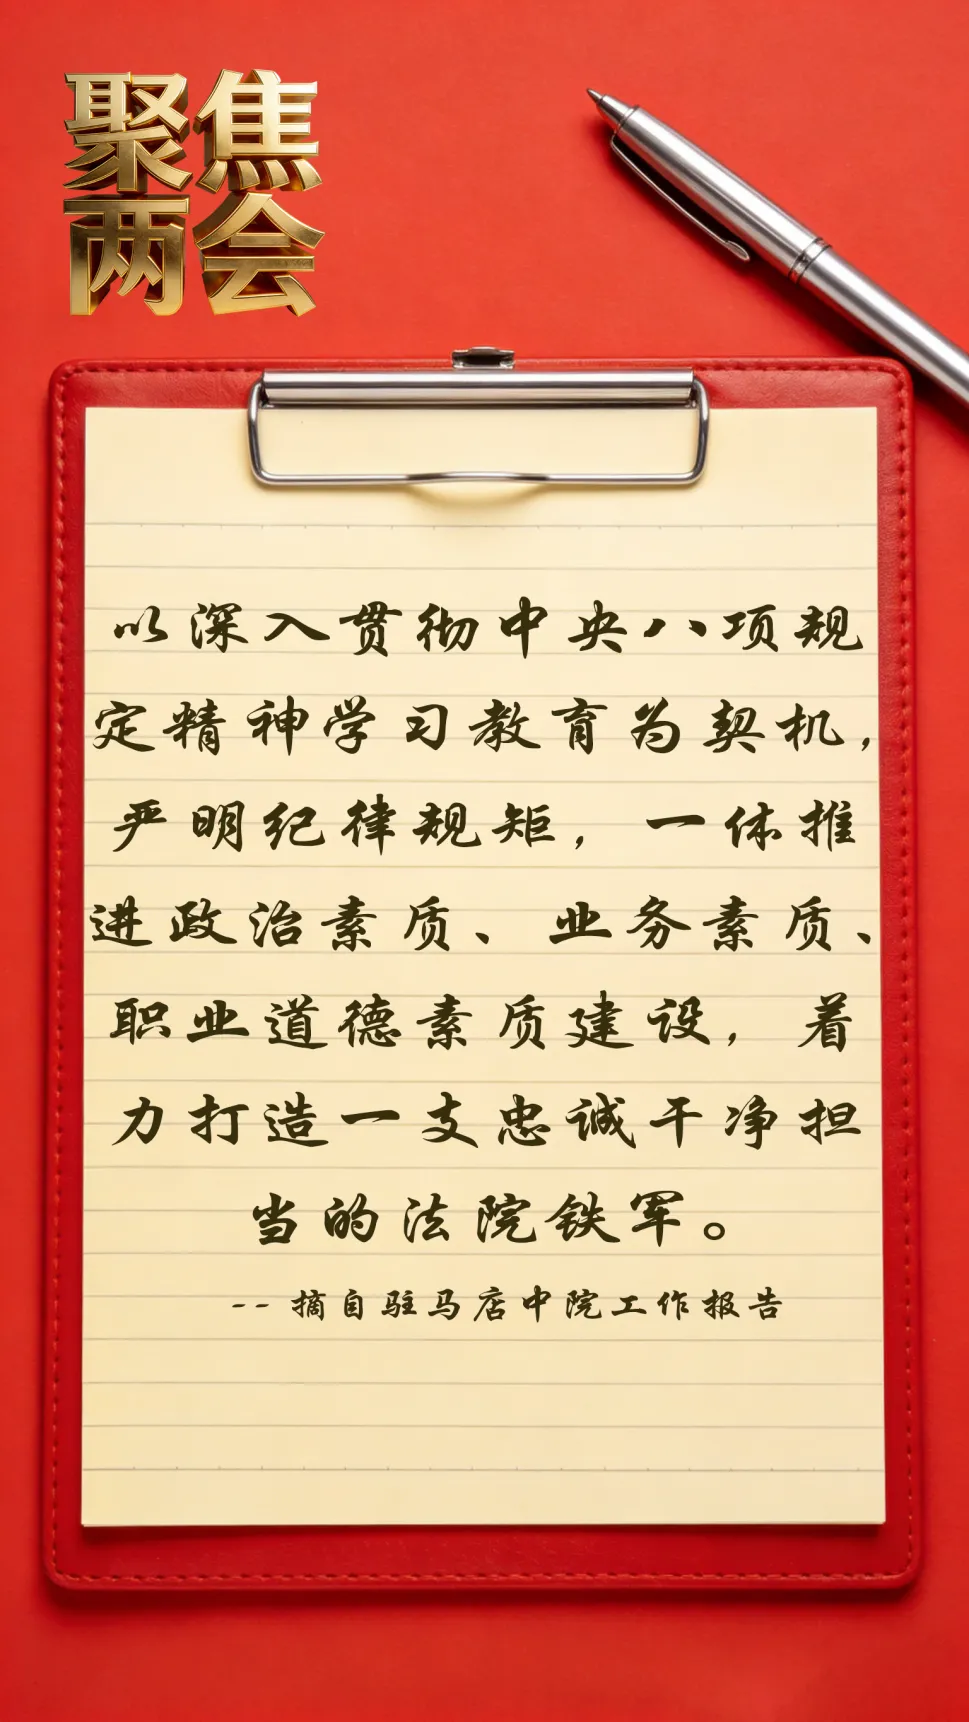 聚焦
两会
以深入贯彻中央八项规
定精神学习教育为契机，
严明纪律规矩，一体推
进政治素质、业务素质、
职业道德素质建设，着
力打造一支忠诚干净担
当的法院铁军。
--摘自驻马店中院工作报告